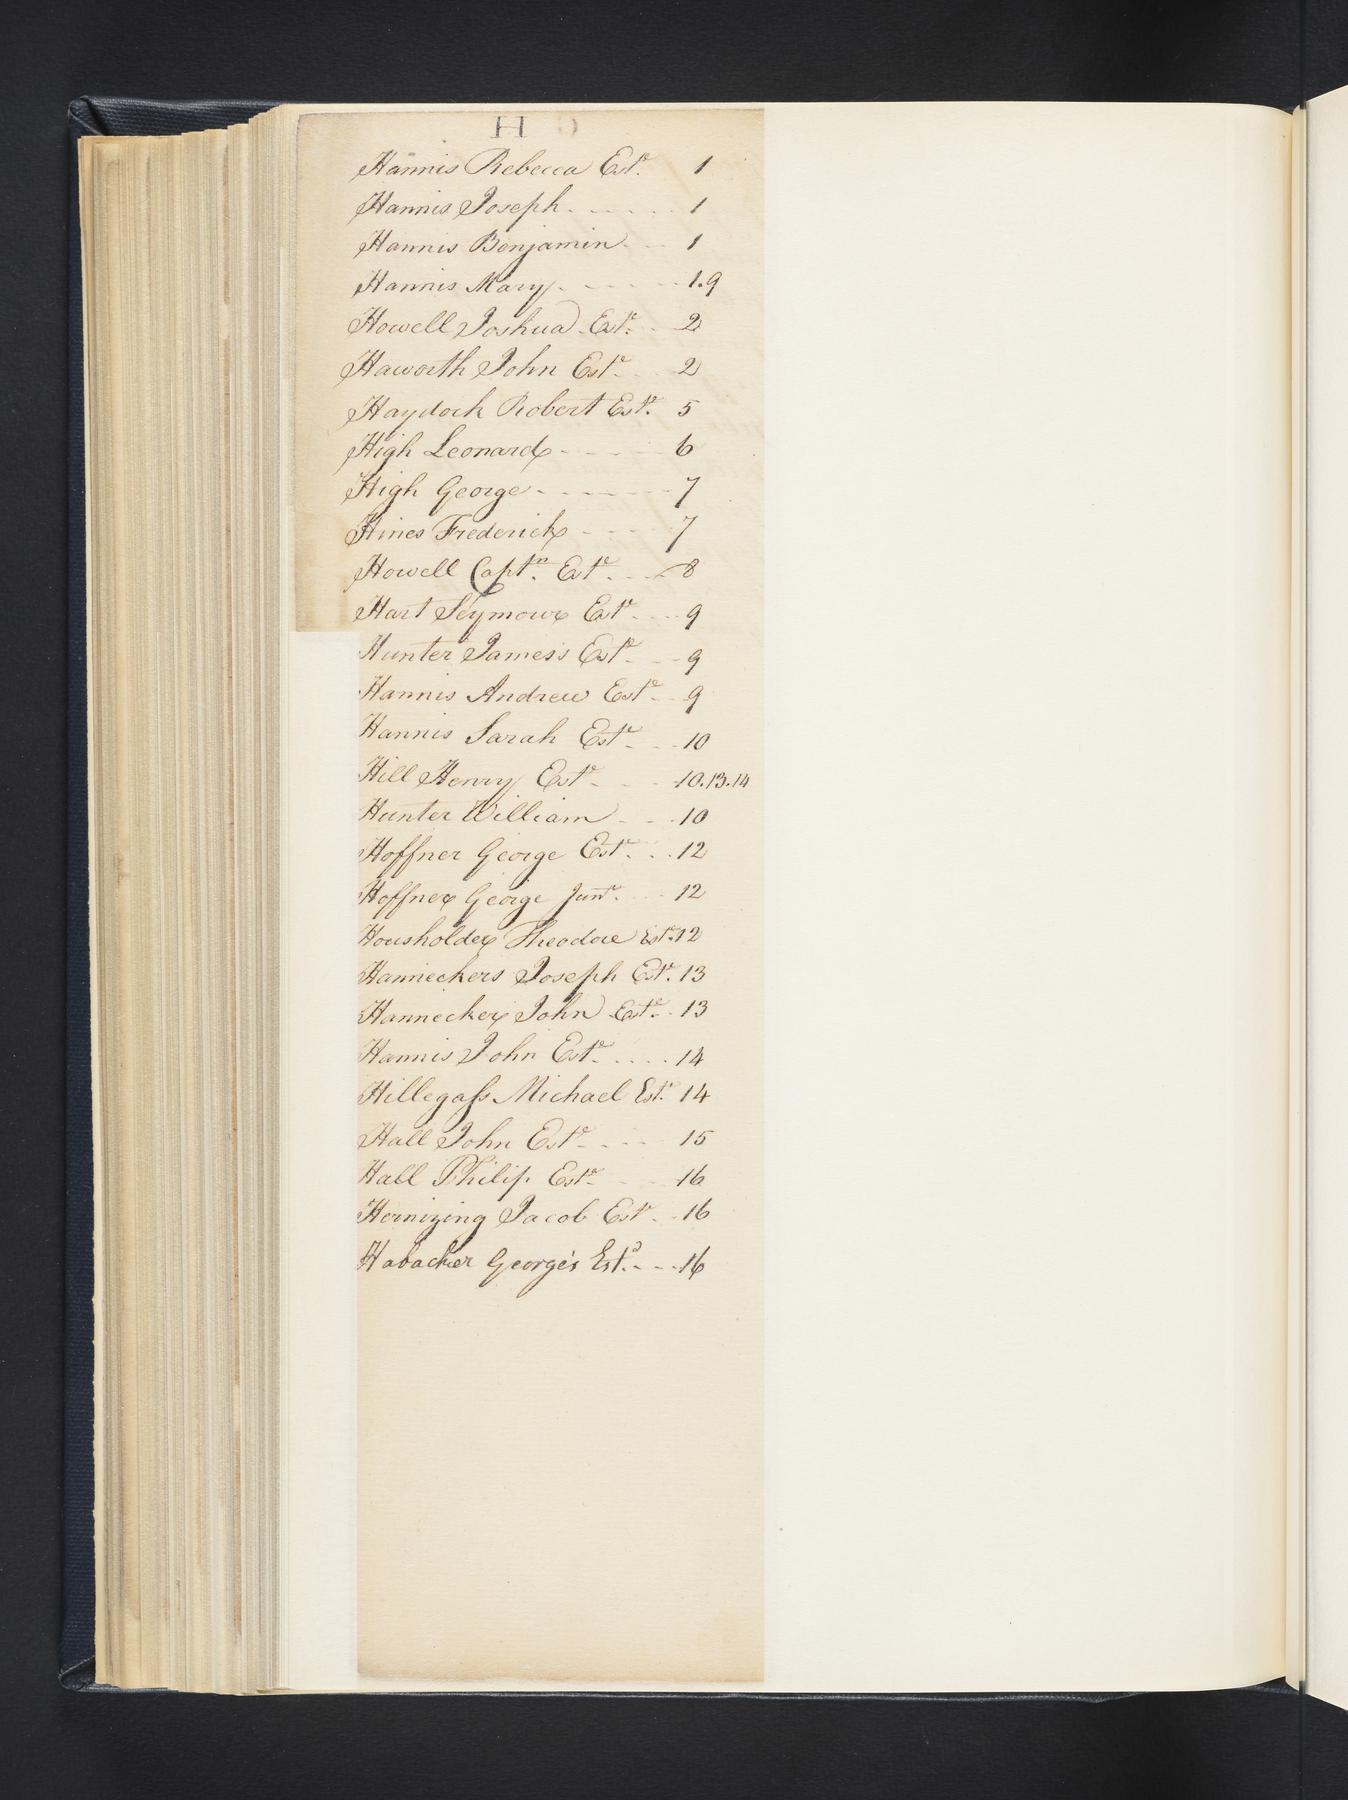 H
Hannis Rebecca Est.e 1
Hannis Joseph 1
Hannis Benjamin 1
Hannis Mary 1.9
Howell Joshua Est.e 2
Haworth John Est.e 2
Haydock Robert Est.e 5
High Leonard 6
High George 7
Hines Frederick 7
Howell Capt.n Est.e 8
Hart Seymour Est.e 9
Hunter James's Est.e 9
Hannis Andrew Est.e 9
Hannis Sarah Est.e 10
Hill Henry Est.e 10.13.14
Hunter William 10
Hoffner George Est.e 12
Hoffner George Junr. 12
Housholder Theodore Est.e 12
Hanneckers Joseph Est.e 13
Hannecker John Est.e 13
Hannis John Est.e 14
Hillegaſs Michael Est.e 14
Hall John Est.e 15
Hall Philip Est.e 16
Hernizing Jacob Est.e 16
Habacker George's Est.e 16